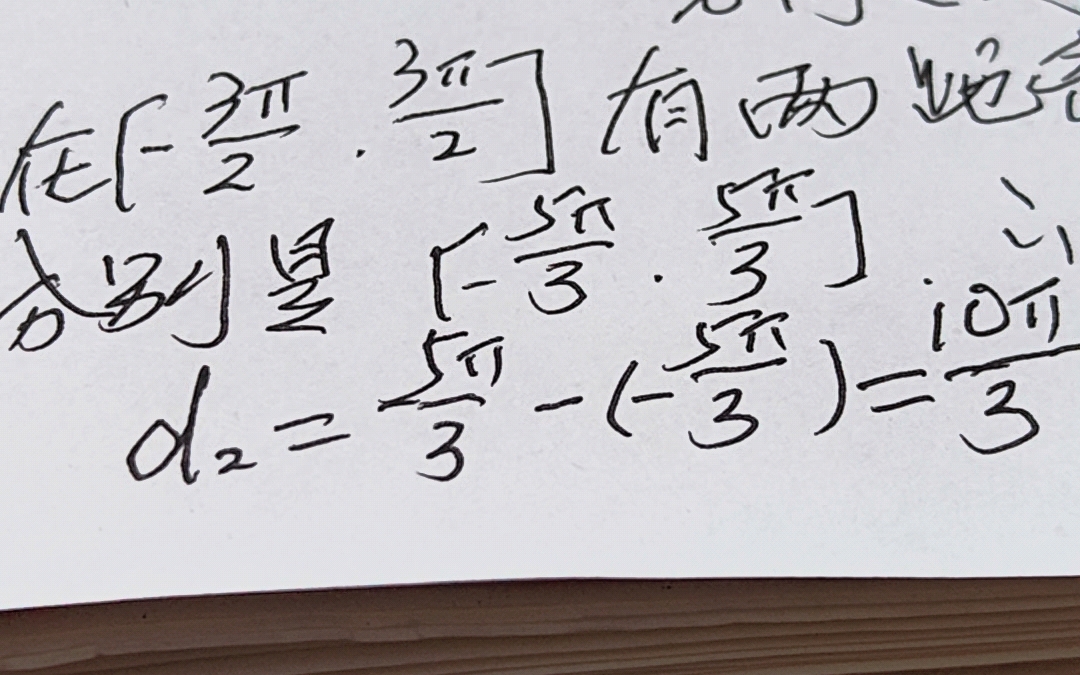 在[-3π/2 . 3π/2]有两
分别是 [-5π/3 . 5π/3]
d₂ = 5π/3 - (-5π/3) = 10π/3